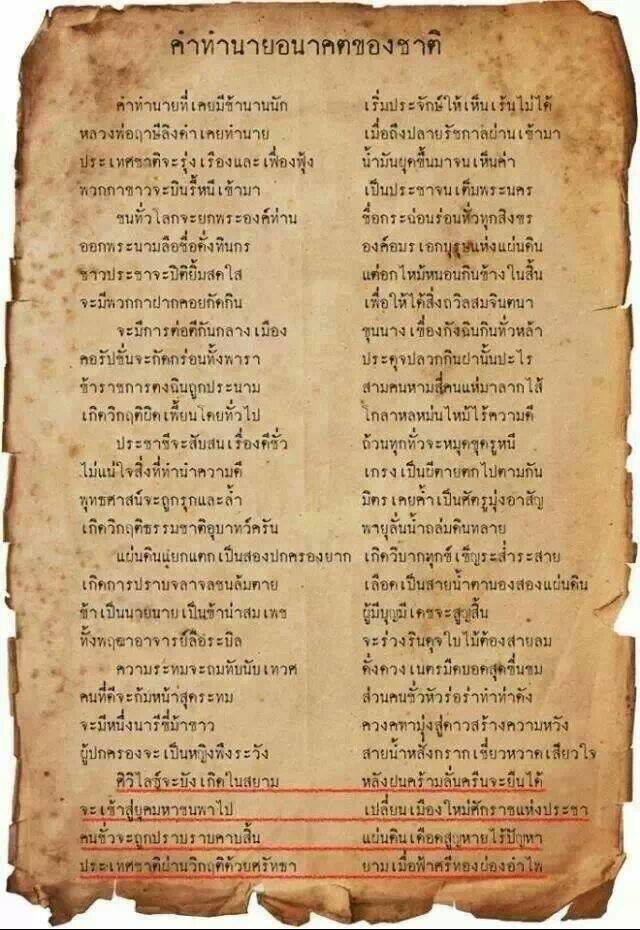 คำทำนายอนาคตของชาติ
คำทำนายที่เคยมีช้านานนัก เริ่มประจักษ์ให้เห็นเร้นไม่ได้
หลวงพ่อฤาษีลิงดำเคยทำนาย เมื่อถึงปลายรัชกาลผ่านเข้ามา
ประเทศชาติจะรุ่งเรืองและเฟื่องฟุ้ง น้ำมันผุดขึ้นมาจนเห็นค่า
พวกกาขาวจะบินรี้หนีเข้ามา เป็นประชาชนเต็มพระนคร
ชนทั่วโลกจะยกพระองค์ท่าน ชื่อกระฉ่อนร่อนทั่วทุกสิงขร
ออกพระนามลือชื่อดั่งทินกร องค์อมรเอกบุรุษแห่งแผ่นดิน
ชาวประชาจะปิติยิ้มสดใส แต่อกไหม้หนอนกินข้างในสิ้น
จะมีพวกกาฝากคอยกัดกิน เพื่อให้ได้สิ่งถวิลสมจินตนา
จะมีการต่อตีกันกลางเมือง ขุนนางเขื่องกังฉินกินทั่วหล้า
คอรัปชั่นจะกัดกร่อนทั้งพารา ประดุจปลวกกินฝานั้นปะไร
ข้าราชการตงฉินถูกประนาม สามคนหามสี่คนแห่มาลากไส้
เกิดวิกฤติผิดเพี้ยนโดยทั่วไป โกลาหลหม่นไหม้ไร้ความดี
ประชาชีจะสับสนเรื่องดีชั่ว ถ้วนทุกทั่วจะหมุดขุดรูหนี
ไม่แน่ใจสิ่งที่ทำนำความดี เกรงเป็นผีตายตกไปตามกัน
พุทธศาสน์จะถูกรุกและล้ำ มิตรเคยค้ำเป็นศัตรูมุ่งอาสัญ
เกิดวิกฤติธรรมชาติอุบาทว์ครัน พายุลั่นน้ำถล่มดินทลาย
แผ่นดินแยกแตกเป็นสองปกครองยาก เกิดวิบากทุกข์เข็ญระส่ำระสาย
เกิดการปราบจลาจลชนล้มตาย เลือดเป็นสายน้ำตานองสองแผ่นดิน
ข้าเป็นนายนายเป็นข้าน่าสมเพช ผู้มีบุญมีเดชจะสูญสิ้น
ทั้งพฤฒาอาจารย์ลือระบิล จะร่วงรินดุจใบไม้ต้องสายลม
ความระทมจะถมทับนับเทวศ ดั่งดวงเนตรมืดบอดสุดขื่นขม
คนที่ดีจะก้มหน้าสุดระทม ส่วนคนชั่วหัวร่อร่าทำท่าดัง
จะมีหนึ่งนารีขี่ม้าขาว ควงคทามุ่งสู่ดาวสร้างความหวัง
ผู้ปกครองจะเป็นหญิงพึงระวัง สายน้ำหลั่งกรากเชี่ยวหวาดเสียวใจ
ศิวิไลซ์จะบังเกิดในสยาม หลังฝนคร้ามลั่นครืนจะยืนได้
จะเข้าสู่ยุคมหาชนพาไป เปลี่ยนเมืองใหม่ศักราชแห่งประชา
คนชั่วจะถูกปราบราบคาบสิ้น แผ่นดินเดือดสูญหายไร้ปัญหา
ประเทศชาติผ่านวิกฤติด้วยศรัทธา ยามเมื่อฟ้าศรีทองผ่องอำไพ